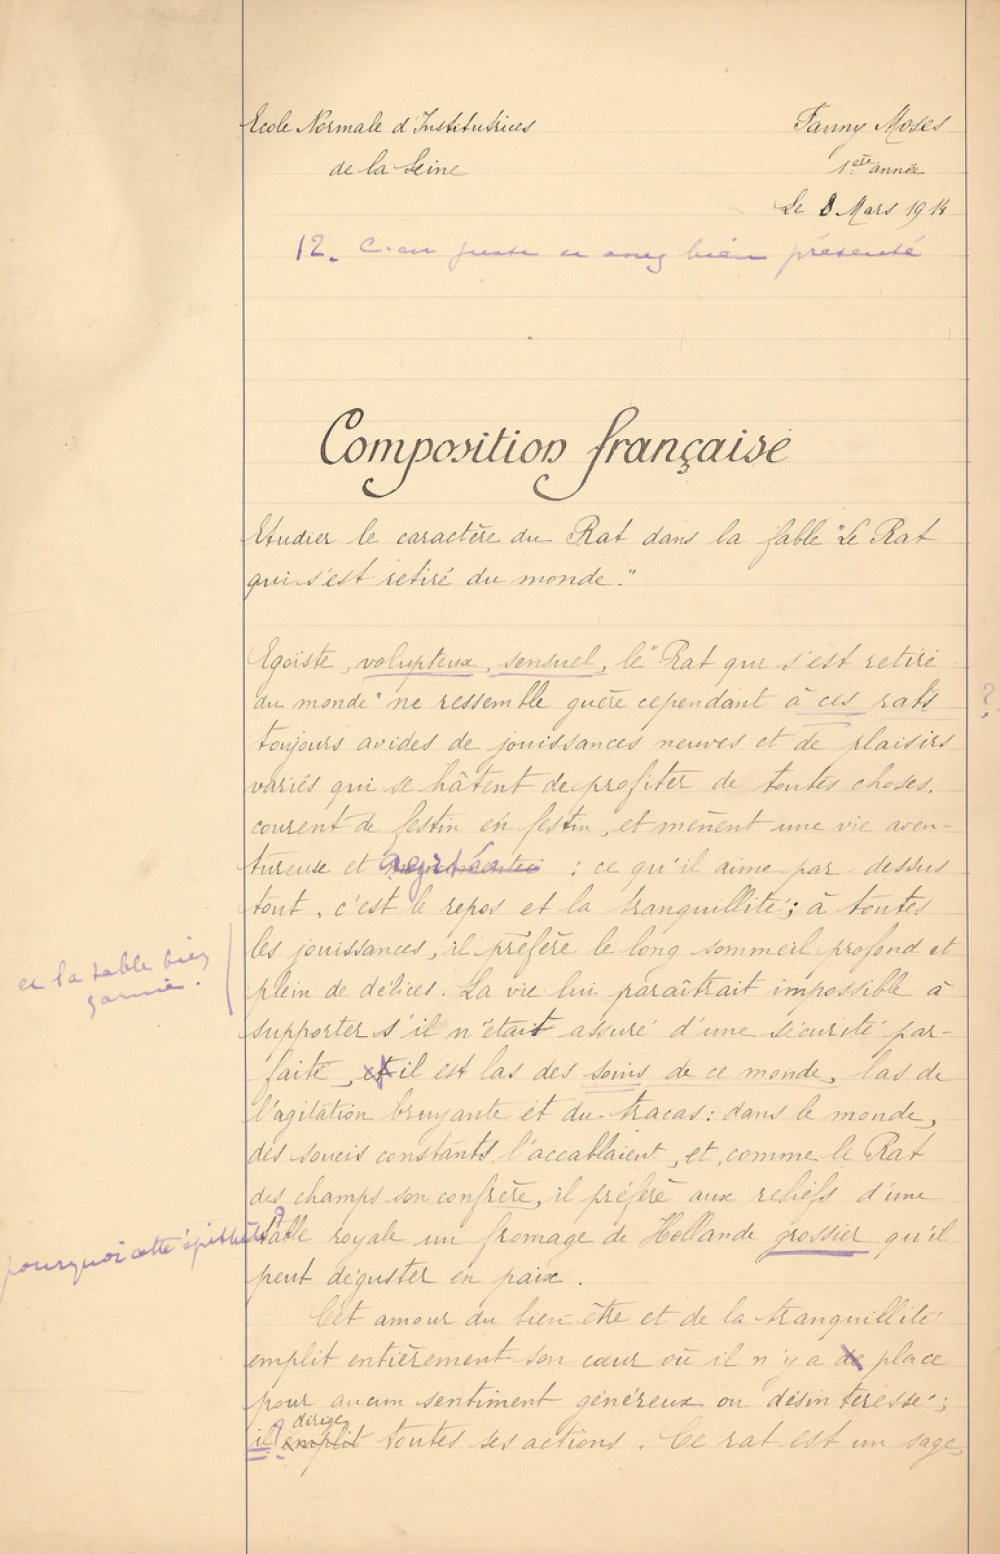 Ecole Normale d'Institutrices
Fanny Moses
de la Seine
1ère année
Le 8 Mars 1914
12. C'est juste et assez bien présenté
Composition française
Etudier le caractère du Rat dans la fable "Le Rat
qui s'est retiré du monde."
Egoïste, volupteux, sensuel, le "Rat qui s'est retiré
du monde" ne ressemble guère cependant à ces rats
?
toujours avides de jouissances neuves et de plaisirs
variés qui se hâtent de profiter de toutes choses,
courent de festin en festin, et mènent une vie aven-
tureuse et agitée : ce qu'il aime par-dessus
tout, c'est le repos et la tranquillité ; à toutes
les jouissances, il préfère le long sommeil profond et
et la table bien
garnie.
plein de délices. La vie lui paraîtrait impossible à
supporter s'il n'était assuré d'une sécurité par-
faite, et il est las des soins de ce monde, las de
l'agitation bruyante et du tracas : dans le monde,
des soucis constants l'accablaient, et, comme le Rat
des champs son confrère, il préfère aux reliefs d'une
pourquoi cette épithète ?
table royale un fromage de Hollande grossier qu'il
peut déguster en paix.
Cet amour du bien-être et de la tranquillité
emplit entièrement son cœur où il n'y a de place
pour aucun sentiment généreux ou désintéressé ;
?
dirige
il emplit toutes ses actions. Ce rat est un sage,